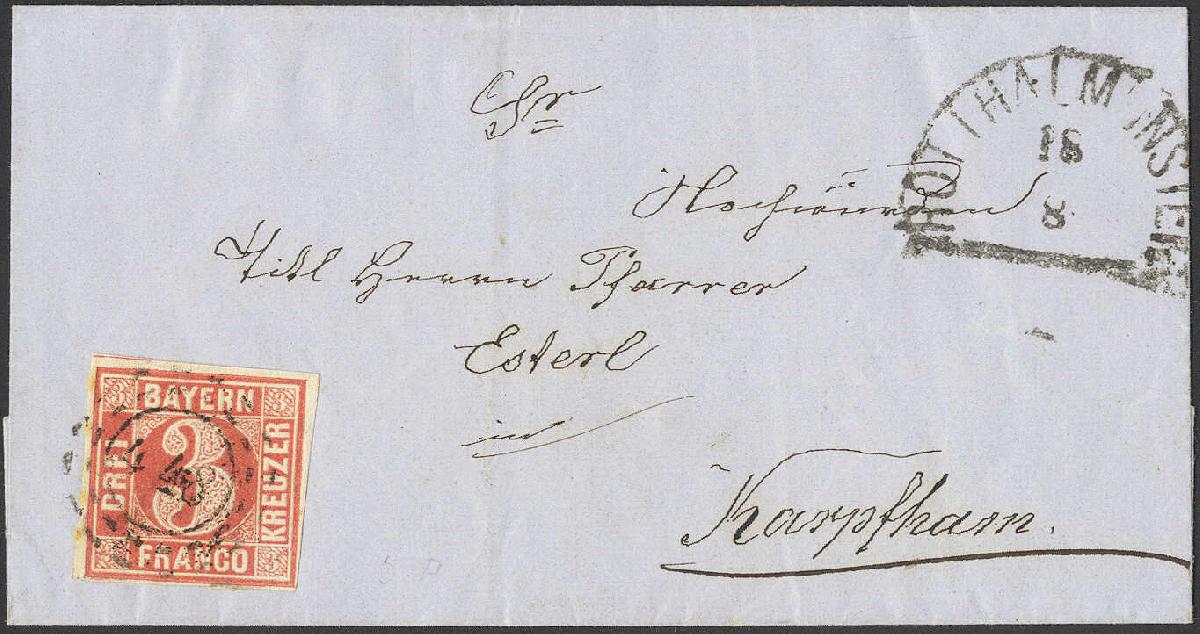 Sr
Hochwürden
Titl Herrn Pfarrer
Esterl
in
Karpfham.
ROTTHALMÜNSTER
18
8
BAYERN
DREI
3
KREUZER
FRANCO
448